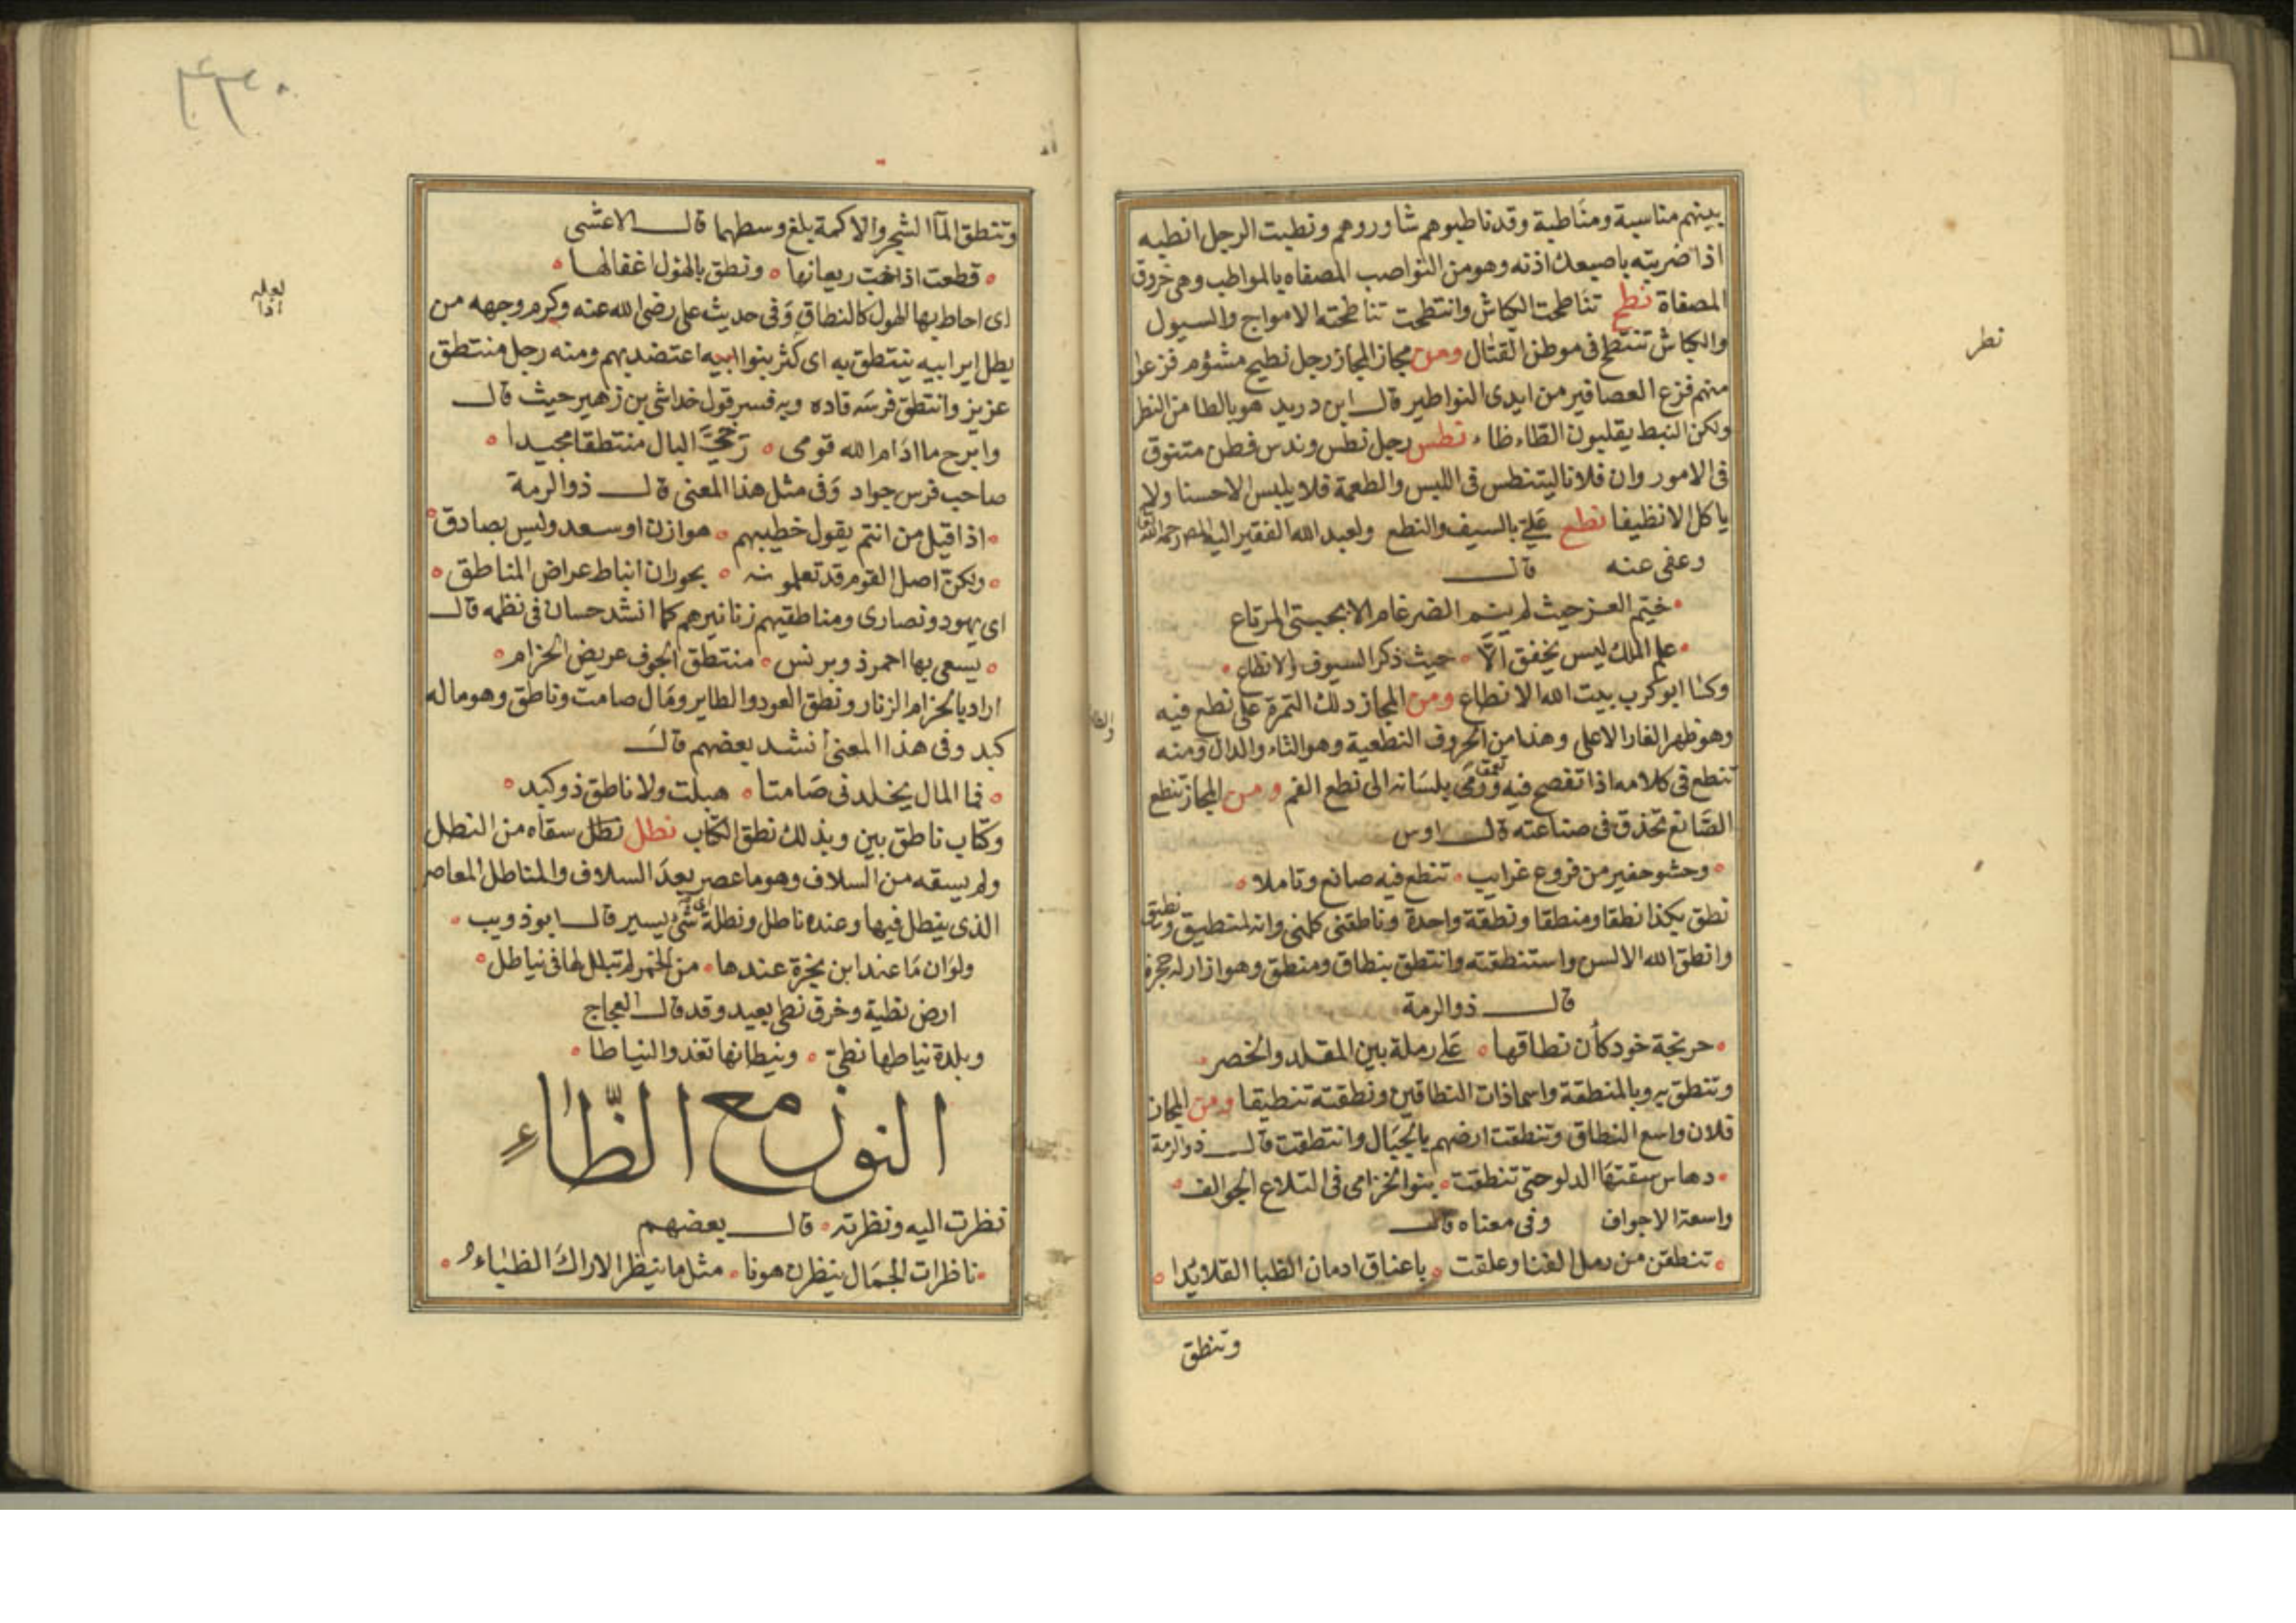 بينهم مناسبة ومناطبة وقد ناطبوهم شاوروهم ونطبت الرجل انطبه
اذا ضربته باصبعك اذنه وهو من النواصب المصفاه بالمواطب وهى خروق
المصفاة نطح تناطحت الكباش وانتطحت تناطحته الامواج والسيول
والكباش تنتطح فى موطن القتال ومن مجاز المجاز رجل نطيح مشئوم فزعوا
نطر
منهم فزع العصافير من ايدى النواطير قال ابن دريد هو بالطا من النظر
ولكن النبط يقلبون الظاء طاء نطس رجل نطس وندس فطن متنوق
فى الامور وان فلانا ليتنطس فى اللبس والطعمة فلا يلبس الا حسنا ولا
ياكل الا نظيفا نطع علىّ بالسيف والنطع ولعبد الله الفقير اليه
وعفى عنه قال
ختم العز حيث لم الضرغام الا المرتاع
علم الملك ليس يخفق الّا حيث ذكر السيوف والانطاع
وكسا ابو كرب بيت الله الانطاع ومن المجاز دلك التمرة على نطع فيه
وهو ظهر الغار الاعلى وهذا من الحروف النطعية وهو الثاء والدال ومنه
تنطع فى كلامه اذا تفصح فيه وتعمق ورمى بلسانه الى نطع الفم ومن المجاز تنطع
الصانع تحذق فى صناعته قال اوس
وحشو حفير من فروع غرايب تنطع فيه صانع وتاملا
نطق بكذا نطقا ومنطقا ونطقة واحدة وناطقنى كلمنى وانه لمنطيق ونطيق
وانطق الله الالسن واستنطقته وانتطق بنطاق ومنطق وهو ازار له حجزة
قال ذو الرمة
حرنجة خود كأن نطاقها على رملة بين المقلد والخصر
وتنطق به وبالمنطقة واسما ذات النطاقين ونطقته تنطيقا ومن المجاز
فلان واسع النطاق وتنطقت ارضهم بالجبال وانتطقت قال ذو الرمة
دهاس سقتها الدلو حتى تنطقت بنور الخزامى فى التلاع الجوالف
واسعة الاجواف وفى معناه قال
تنطقن من رمل الغنا وعلقت باعناق ادمان الظبا القلايدا
وتنطق
٣٣٠
وتنطق المآ الشجر والاكمة بلغ وسطهما قال الاعشى
قطعت اذا خب ريعانها ونطق بالهول اغفالها
لعله اذا
اى احاط بها الهول كالنطاق وفى حديث على رضى الله عنه وكرم وجهه من
يطل اير ابيه ينتطق به اى كثر بنوا ابيه اعتضد بهم ومنه رجل منتطق
عزيز وانتطق فرسه قاده وبه فسر قول خداش بن زهير حيث قال
وابرح ما ادام الله قومى رخىّ البال منتطقا مجيدا
صاحب فرس جواد وفى مثل هذا المعنى قال ذو الرمة
اذا قيل من انتم يقول خطيبهم هوازن او سعد وليس بصادق
ولكنّ اصل القوم قد تعلمونه بحوران انباط عراض المناطق
اى يهود ونصارى ومناطقهم زنانيرهم كما انشد حسان فى نظمه قال
يسعى بها احمر ذو برنس منتطق الجوف عريض الحزام
اراد بالحزام الزنار ونطق العود والطاير ومال صامت وناطق وهو ما له
كبد وفى هذا المعنى أنشد بعضهم قال
فما المال يخلد فى صامتا هبلت ولا ناطق ذو كبد
وكتاب ناطق بين وبذلك نطق الكتاب نطل نطل سقاه من النطل
ولم يسقه من السلاف وهو ما عصر بعد السلاف والمناطل المعاصر
الذى ينطل فيها وعنده ناطل ونطلة اى شئ يسير قال ابو ذويب
ولو ان ما عند ابن بجرة عندها من الخمر لم تبلل لها فى نياطل
ارض نطية وخرق نطى بعيد وقد قال العجاج
وبلدة نياطها نطىّ ونيطانها تغدوا النياطا
النون مع الظّاء
نظرت اليه ونظرته قال بعضهم
ناظرات الجمال ينظرن هونا مثل ما ينظر الاراك الظباء